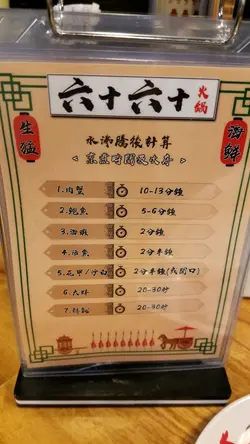 六十六十
火鍋
生猛
海鮮
水沸騰後計算
< 烹煮時間及次序 >
1.肉蟹 10-13分鐘
2.鮑魚 5-6分鐘
3.海蝦 2分鐘
4.活魚 2分半鐘
5.花甲/沙白 2分半鐘(或開口)
6.大蚌 20-30秒
20-30秒